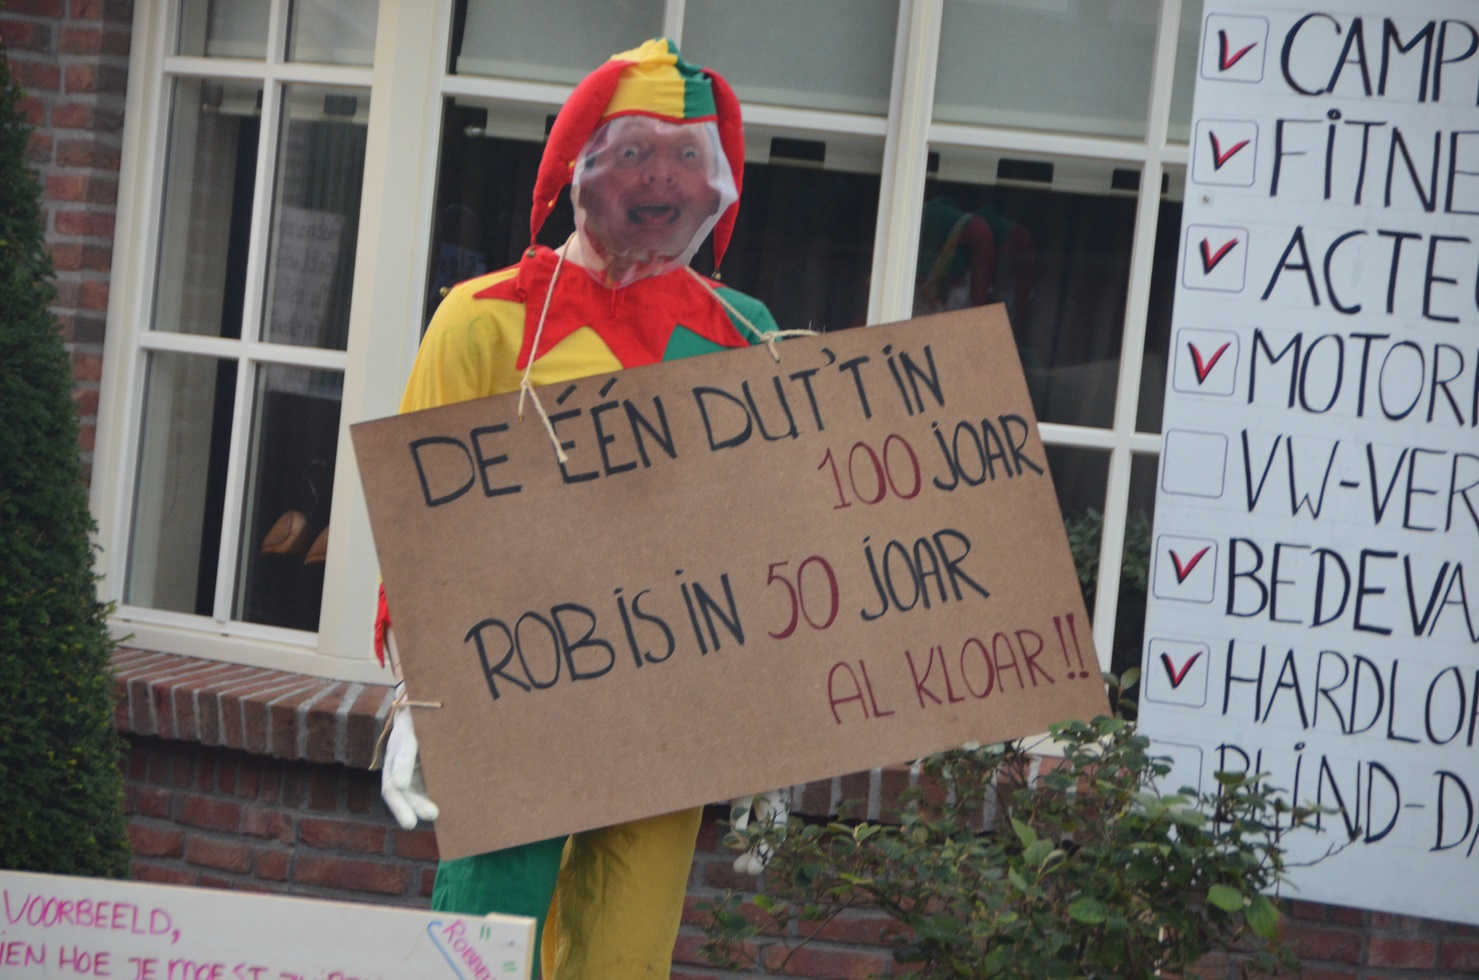 DE ÉÉN DUT 'T IN
100 JOAR
ROB IS IN 50 JOAR
AL KLOAR!!
CAMP
FITNE
ACTE
MOTOR
VW-VER
BEDEVA
HARDLO
BLIND-DA
VOORBEELD,
IEN HOE JE MOEST
"ROBBE